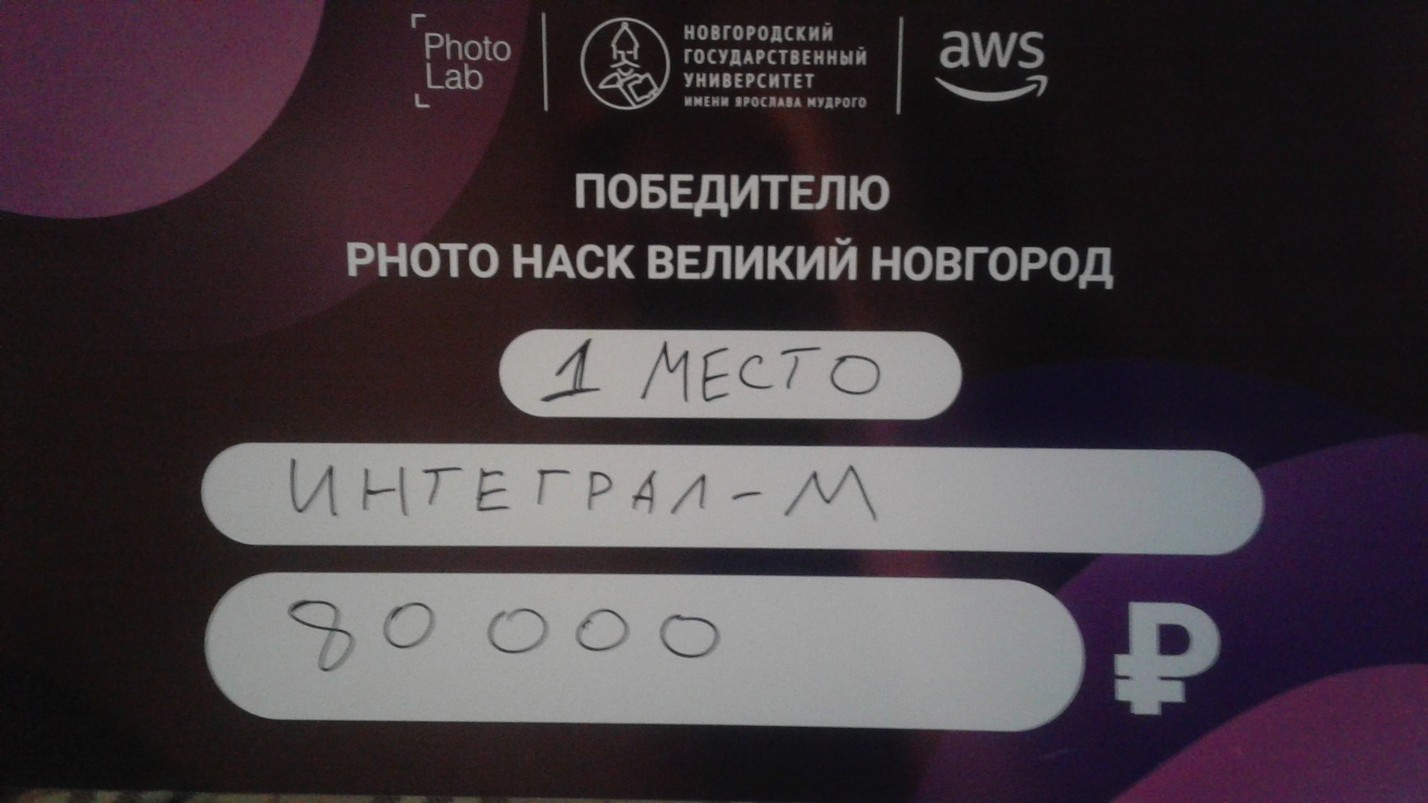 Photo
Lab
НОВГОРОДСКИЙ
ГОСУДАРСТВЕННЫЙ
УНИВЕРСИТЕТ
ИМЕНИ ЯРОСЛАВА МУДРОГО
aws
ПОБЕДИТЕЛЮ
PHOTO HACK ВЕЛИКИЙ НОВГОРОД
1 МЕСТО
ИНТЕГРАЛ-М
80 000 ₽